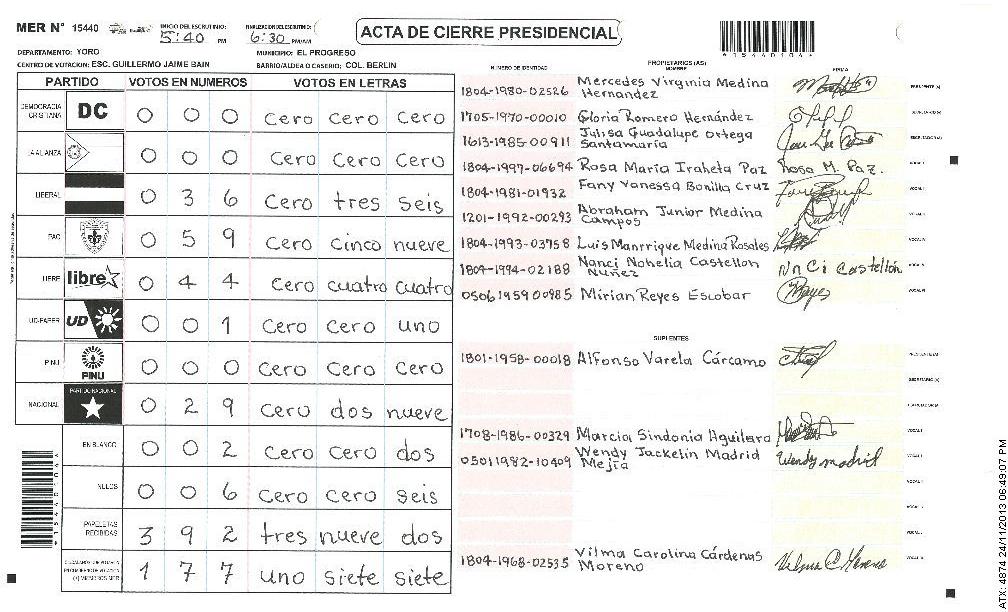 MER N° 15440
INICIO DEL ESCRUTINIO: 5:40 PM
FINALIZACION DEL ESCRUTINIO: 6:30 PM/AM
ACTA DE CIERRE PRESIDENCIAL
DEPARTAMENTO: YORO
MUNICIPIO: EL PROGRESO
CENTRO DE VOTACION: ESC. GUILLERMO JAIME BAIN
BARRIO/ALDEA O CASERIO: COL. BERLIN
PARTIDO VOTOS EN NUMEROS VOTOS EN LETRAS
DEMOCRACIA CRISTIANA DC 0 0 0 cero cero cero
LA ALIANZA 0 0 0 cero cero cero
LIBERAL 0 3 6 cero tres seis
PAC 0 5 9 cero cinco nueve
LIBRE libre 0 4 4 cero cuatro cuatro
UD-FAPER UD 0 0 1 cero cero uno
PINU PINU 0 0 0 cero cero cero
NACIONAL PARTIDO NACIONAL 0 2 9 cero dos nueve
EN BLANCO 0 0 2 cero cero dos
NULOS 0 0 6 cero cero seis
PAPELETAS RECIBIDAS 3 9 2 tres nueve dos
1 7 7 uno siete siete
NUMERO DE IDENTIDAD
PROPIETARIOS (AS)
NOMBRE
FIRMA
1804-1980-02526 Mercedes Virginia Medina Hernandez
PRESIDENTE (A)
1705-1970-00010 Gloria Romero Hernández
SECRETARIO (A)
1613-1985-00911 Julisa Guadalupe Ortega Santamaría
ESCRUTADOR (A)
1804-1997-06694 Rosa María Iraheta Paz Rosa M. Paz.
VOCAL I
1804-1981-01932 Fany Vanessa Bonilla Cruz
VOCAL II
1201-1992-00293 Abraham Junior Medina Campos
1804-1993-03758 Luis Manrrique Medina Rosales
VOCAL IV
1804-1994-02188 Nanci Nohelia Castellon Nuñez Nnci Castellón
0506195900985 Mirian Reyes Escobar Reyes
SUPLENTES
1801-1958-00018 Alfonso Varela Cárcamo
PRESIDENTE (A)
SECRETARIO (A)
1708-1986-00329 Marcia Sindonia Aguilera
VOCAL I
05011982-10409 Wendy Jackelin Madrid Mejía Wendy madrid
1804-1968-02535 Vilma Carolina Cárdenas Moreno Vilma C Moreno
ATX: 4874 24/11/2013 06:49:07 PM